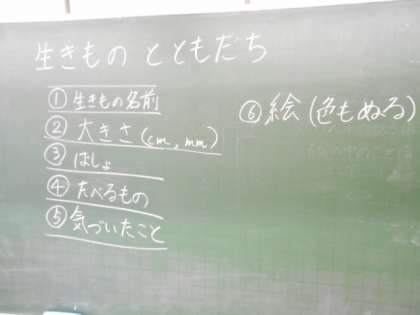 生きもの とともだち
① 生きもの名前
② 大きさ(cm, mm)
③ はしょ
④ たべるもの
⑤ 気づいたこと
⑥ 絵(色もぬる)